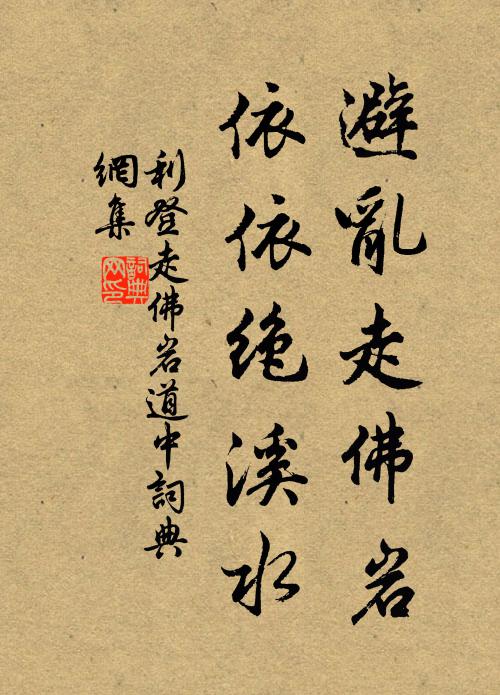 避亂走佛岩
依依绝溪水
利登走佛岩道中詞典
網集
詞典
网印